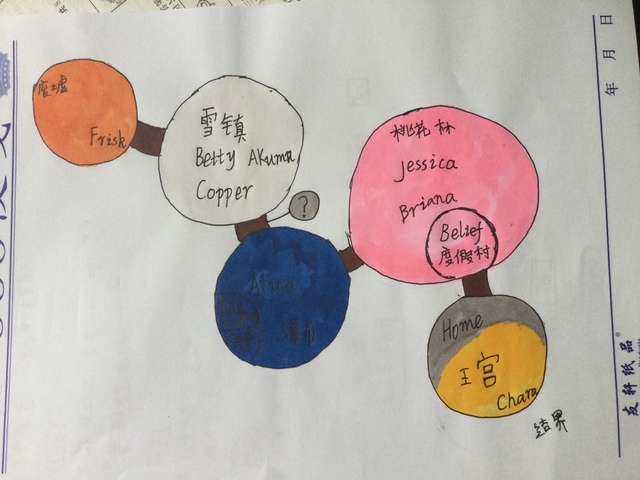 废墟
Frisk
雪镇
Betty Akuma
Copper
?
瀑布
桃花林
Jessica
Briana
Belief
度假村
Home
王宫
Chara
结界
年 月 日
友轩纸品